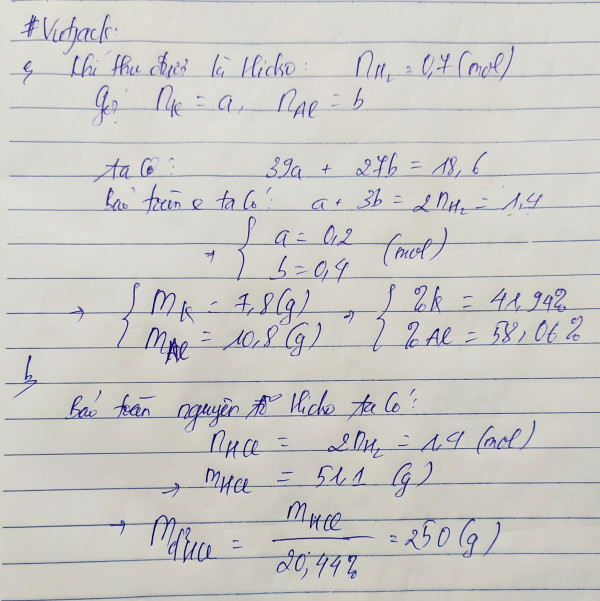 #Vietjack:
a, Khí thu được là Hidro: n_H₂ = 0,7 (mol)
Gọi n_K = a, n_Al = b
ta có: 39a + 27b = 18,6
Bảo toàn e ta có: a + 3b = 2n_H₂ = 1,4
→ { a = 0,2
b = 0,4 (mol)
→ { m_K = 7,8 (g) → { %K = 41,94%
m_Al = 10,8 (g) %Al = 58,06%
b,
Bảo toàn nguyên tố Hidro ta có:
n_HCl = 2n_H₂ = 1,4 (mol)
→ m_HCl = 51,1 (g)
→ m_ddHCl = m_HCl / 20,44% = 250 (g)